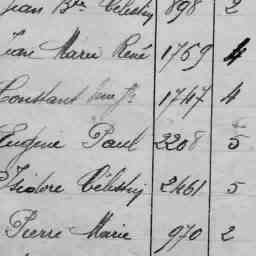 Jean Bte Célestin 898 2
Jean Marie René 1759 4
Constant 1747 4
Eugène Paul 2208 5
Isidore Célestin 2461 5
Pierre Marie 970 2